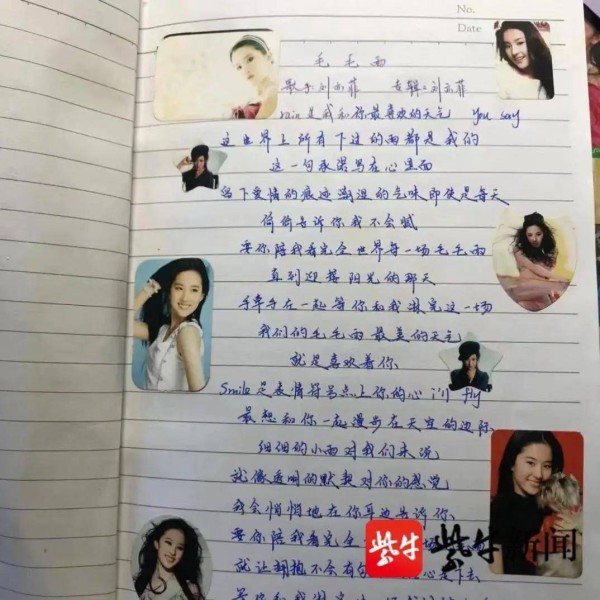 No.
Date
毛毛雨
歌手刘亦菲 专辑:刘亦菲
rain是我和你最喜欢的天气 You say
这世界上所有下过的雨都是我的
这一句承诺写在心里面
留下爱情的痕迹潮湿的气味即使是每天
偷偷告诉你我不会腻
要你陪我看完全世界每一场毛毛雨
直到迎接阳光的那天
手牵手在一起等你和我淋完这一场
我们的毛毛雨最美的天气
就是喜欢着你
Smile是表情符号点上你的心 I'll fly
最想和你一起漫步在天空的边际
细细的小雨对我们来说
就像透明的默契对你的感觉
我会悄悄地在你耳边告诉你
要你陪我看完全
就让拥抱不会有
等你和我淋完这
紫牛 紫牛新闻